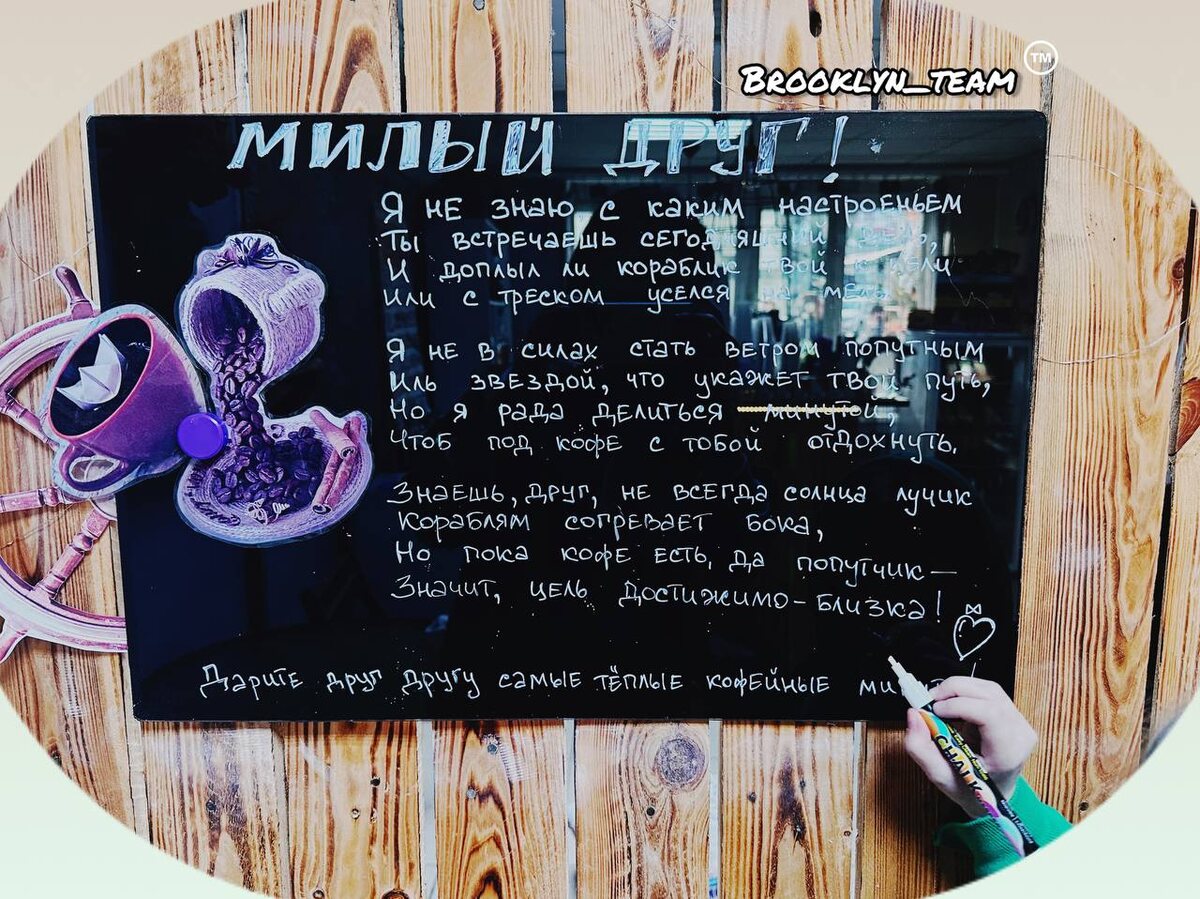 Brooklyn_team
TM
МИЛЫЙ ДРУГ!
Я не знаю с каким настроеньем
Ты встречаешь сегодняшний день,
И доплыл ли кораблик твой к цели
Или с треском уселся на мель.
Я не в силах стать ветром попутным
Иль звездой, что укажет твой путь,
Но я рада делиться минутой,
Чтоб под кофе с тобой отдохнуть.
Знаешь, друг, не всегда солнца лучик
Кораблям согревает бока,
Но пока кофе есть, да попутчик —
Значит, цель достижимо-близка!
Дарите друг другу самые тёплые кофейные
CHALK